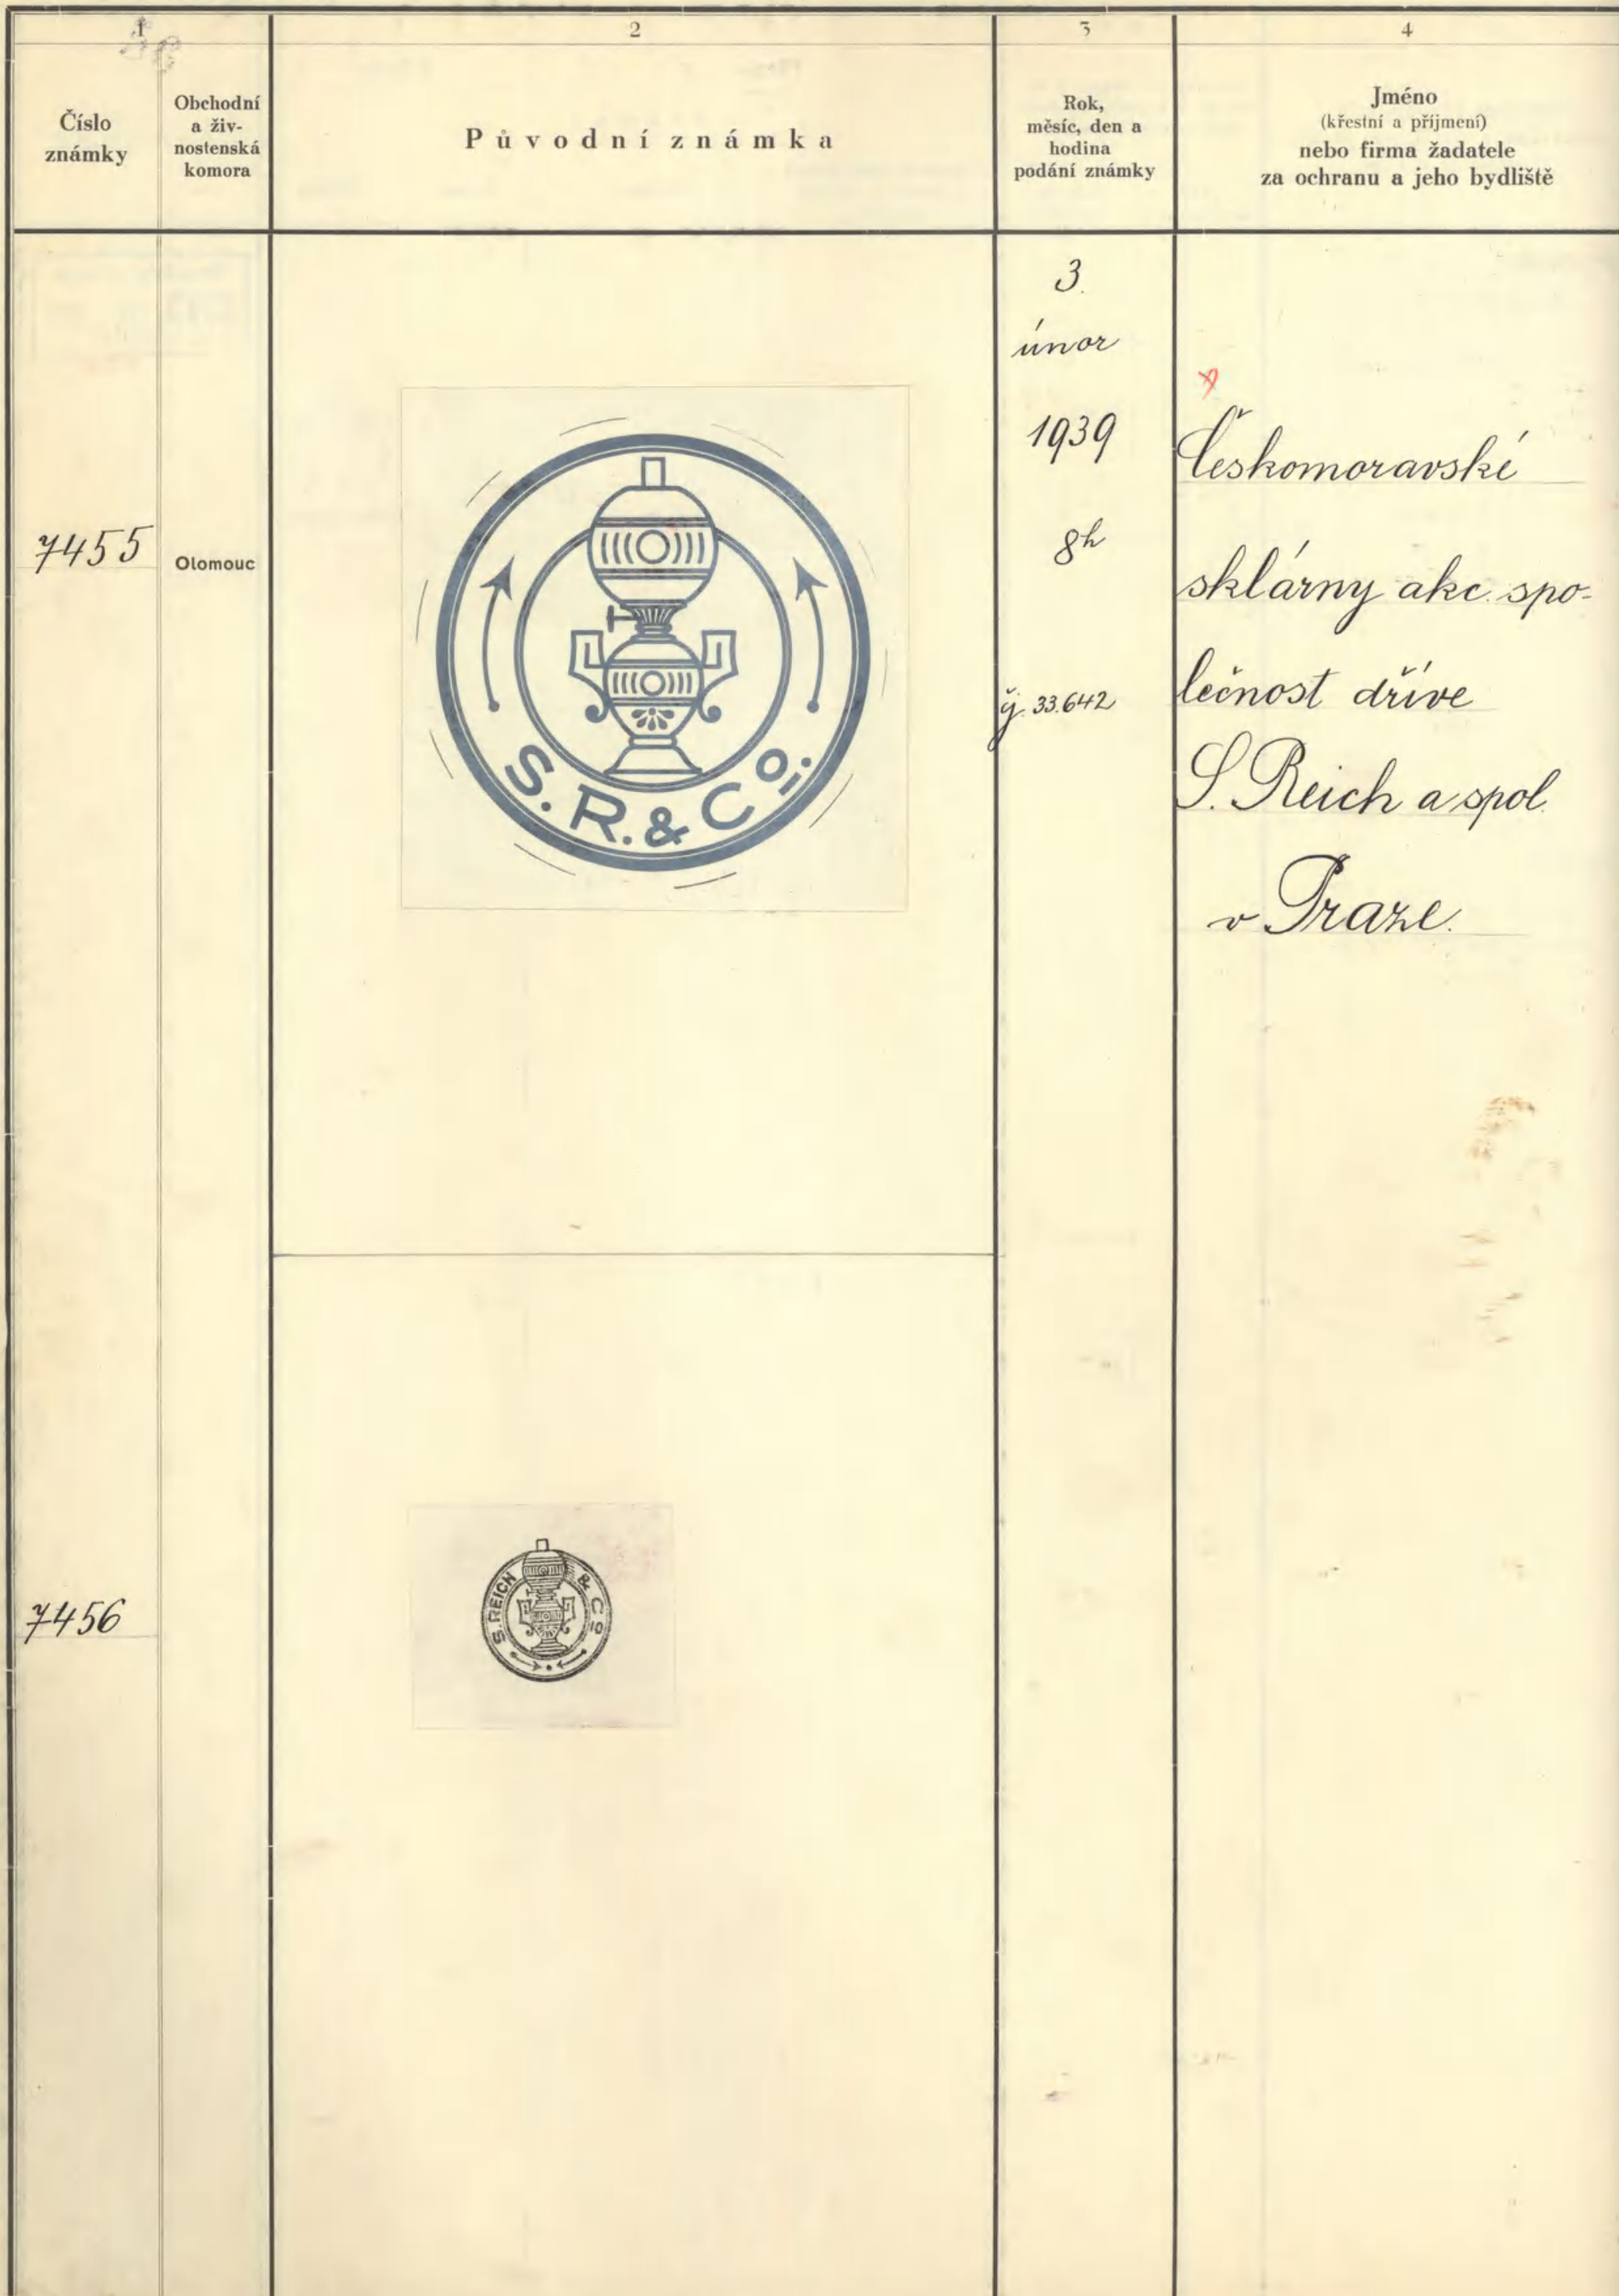 1
2
3
4
Číslo
známky
Obchodní
a živ-
nostenská
komora
Původní známka
Rok,
měsíc, den a
hodina
podání známky
Jméno
(křestní a příjmení)
nebo firma žadatele
za ochranu a jeho bydliště
7455
Olomouc
S. R. & Co.
3.
únor
1939
8h
čj. 33.642
Českomoravské
sklárny akc. spo-
lečnost dříve
S. Reich a spol.
v Praze.
7456
S. REICH & Co